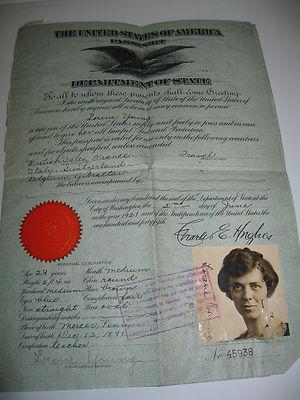 THE UNITED STATES OF AMERICA
PASSPORT
DEPARTMENT OF STATE
To all to whom these presents shall come Greeting:
I the undersigned Secretary of State of the United States of
America hereby request all whom it may concern to permit
Lorene Young
a citizen of the United States safely and freely to pass and in case
of need to give her all lawful Aid and Protection
This passport is valid for use only in the following countries
and for objects specified unless amended
British Isles France Travel
Italy Switzerland
Belgium Gibraltar
The bearer is accompanied by
Given under my hand and the seal of the Department of State at the
City of Washington the 2nd day of June
in the year 1921 and of the Independence of the United States the
one hundred and forty-fifth.
Charles E. Hughes
PERSONAL DESCRIPTION
Age 29 years Mouth medium
Chin round
Forehead medium Hair brown
Eyes blue Complexion fair
Nose straight Face oval
Distinguishing marks
Place of birth Mercer, Penna
Date of birth Dec 12, 1891
Occupation teacher
Lorene Young
SIGNATURE OF BEARER
No 45938